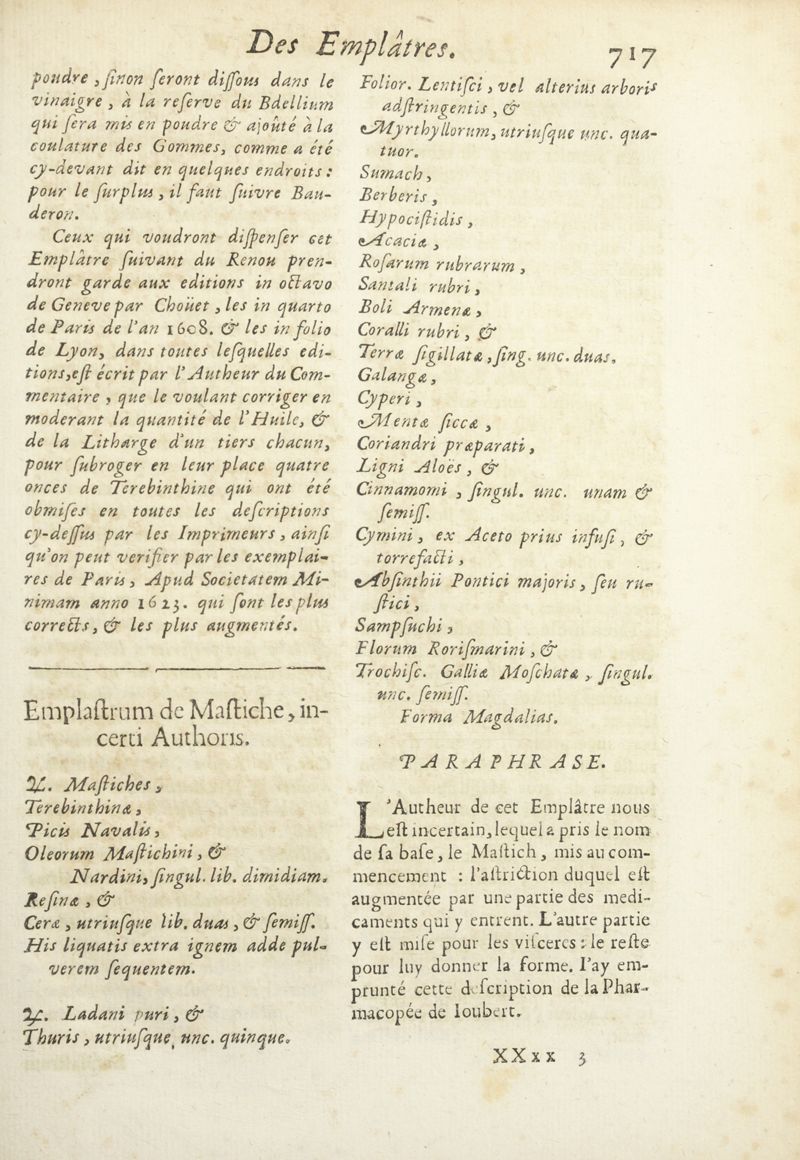 Des Emplâtres. 717
poudre, ſinon ſeront diſſous dans le
vinaigre, à la reſerve du Bdellium
qui ſera mis en poudre & ajoûté à la
coulature des Gommes, comme a été
cy-devant dit en quelques endroits :
pour le ſurplus, il faut ſuivre Bau-
deron.
Ceux qui voudront diſpenſer cet
Emplâtre ſuivant du Renou pren-
dront garde aux editions in octavo
de Geneve par Choüet, les in quarto
de Paris de l'an 1608. & les in folio
de Lyon, dans toutes leſquelles edi-
tions, eſt écrit par l'Autheur du Com-
mentaire, que le voulant corriger en
moderant la quantité de l'Huile, &
de la Litharge d'un tiers chacun,
pour ſubroger en leur place quatre
onces de Terebinthine qui ont été
obmiſes en toutes les deſcriptions
cy-deſſus par les Imprimeurs, ainſi
qu'on peut verifier par les exemplai-
res de Paris, Apud Societatem Mi-
nimam anno 1623. qui ſont les plus
corrects, & les plus augmentés.
Emplaſtrum de Maſtiche, in-
certi Authoris.
℞. Maſtiches,
Terebinthinæ,
Picis Navalis,
Oleorum Maſtichini, &
Nardini, ſingul. lib. dimidiam.
Reſinæ, &
Ceræ, utriuſque lib. duas, & ſemiſſ.
His liquatis extra ignem adde pul-
verem ſequentem.
℞. Ladani puri, &
Thuris, utriuſque unc. quinque.
Folior. Lentiſci, vel alterius arboris
adſtringentis, &
Myrthyllorum, utriuſque unc. qua-
tuor.
Sumach,
Berberis,
Hypociſtidis,
Acaciæ,
Roſarum rubrarum,
Santali rubri,
Boli Armenæ,
Coralli rubri, &
Terræ ſigillatæ, ſing. unc. duas.
Galangæ,
Cyperi,
Mentæ ſiccæ,
Coriandri præparati,
Ligni Aloës, &
Cinnamomi, ſingul. unc. unam &
ſemiſſ.
Cymini, ex Aceto prius infuſi, &
torrefacti,
Abſinthii Pontici majoris, ſeu ru-
ſtici,
Sampſuchi,
Florum Roriſmarini, &
Trochiſc. Galliæ Moſchatæ, ſingul.
unc. ſemiſſ.
Forma Magdalias.
PARAPHRASE.
L'Autheur de cet Emplâtre nous
eſt incertain, lequel a pris le nom
de ſa baſe, le Maſtich, mis au com-
mencement : l'aſtriction duquel eſt
augmentée par une partie des medi-
caments qui y entrent. L'autre partie
y eſt miſe pour les viſceres : le reſte
pour luy donner la forme. I'ay em-
prunté cette deſcription de la Phar-
macopée de Ioubert.
XXxx 3